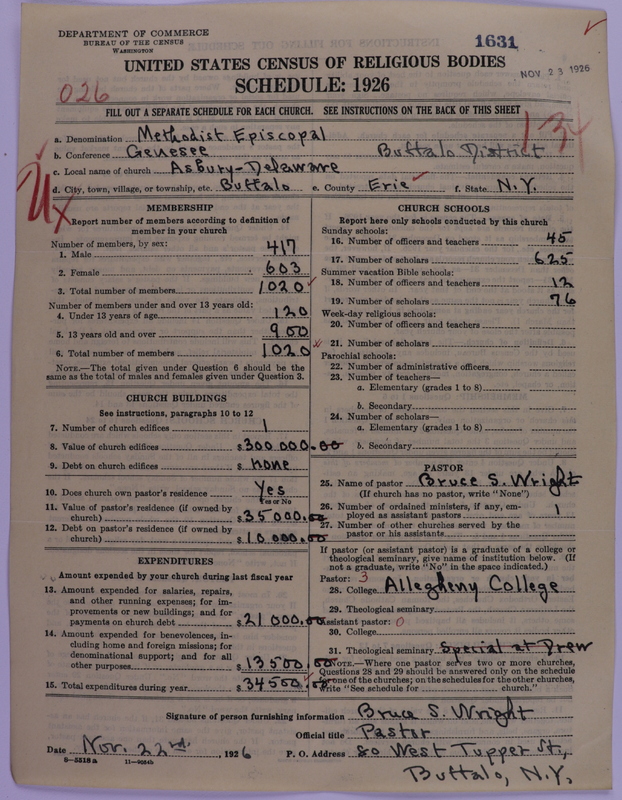 DEPARTMENT OF COMMERCE
BUREAU OF THE CENSUS
WASHINGTON
1631
UNITED STATES CENSUS OF RELIGIOUS BODIES
NOV 23 1926
SCHEDULE: 1926
026
FILL OUT A SEPARATE SCHEDULE FOR EACH CHURCH. SEE INSTRUCTIONS ON THE BACK OF THIS SHEET
134
a. Denomination Methodist Episcopal
b. Conference Genesee Buffalo District
c. Local name of church Asbury-Delaware
d. City, town, village, or township, etc. Buffalo e. County Erie f. State N.Y.
MEMBERSHIP
Report number of members according to definition of
member in your church
Number of members, by sex:
1. Male 417
2. Female 603
3. Total number of members 1020
Number of members under and over 13 years old:
4. Under 13 years of age 120
5. 13 years old and over 900
6. Total number of members 1020
NOTE.—The total given under Question 6 should be the
same as the total of males and females given under Question 3.
CHURCH BUILDINGS
See instructions, paragraphs 10 to 12
7. Number of church edifices 1
8. Value of church edifices $300000.00
9. Debt on church edifices $ none
10. Does church own pastor's residence Yes
Yes or No
11. Value of pastor's residence (if owned by
church) $35000.00
12. Debt on pastor's residence (if owned by
church) $10.000.00
EXPENDITURES
Amount expended by your church during last fiscal year
13. Amount expended for salaries, repairs,
and other running expenses; for im-
provements or new buildings; and for
payments on church debt $21000.00
14. Amount expended for benevolences, in-
cluding home and foreign missions; for
denominational support; and for all
other purposes $13500.00
15. Total expenditures during year $34500.00
CHURCH SCHOOLS
Report here only schools conducted by this church
Sunday schools:
16. Number of officers and teachers 45
17. Number of scholars 625
Summer vacation Bible schools:
18. Number of officers and teachers 12
19. Number of scholars 76
Week-day religious schools:
20. Number of officers and teachers
21. Number of scholars
Parochial schools:
22. Number of administrative officers
23. Number of teachers—
a. Elementary (grades 1 to 8)
b. Secondary
24. Number of scholars—
a. Elementary (grades 1 to 8)
b. Secondary
PASTOR
25. Name of pastor Bruce S. Wright
(If church has no pastor, write "None")
26. Number of ordained ministers, if any, em-
ployed as assistant pastors 1
27. Number of other churches served by the
pastor or his assistants
If pastor (or assistant pastor) is a graduate of a college or
theological seminary, give name of institution below. (If
not a graduate, write "No" in the space indicated.)
Pastor: 3
28. College Allegheny College
29. Theological seminary
Assistant pastor: 0
30. College
31. Theological seminary Special at Drew
NOTE.—Where one pastor serves two or more churches,
Questions 28 and 29 should be answered only on the schedule
for one of the churches; on the schedules for the other churches,
write "See schedule for church."
Signature of person furnishing information Bruce S. Wright
Official title Pastor
Date Nov. 22nd, 1926 P. O. Address 80 West Tupper St.,
8—5518a 11—9054b Buffalo, N.Y.